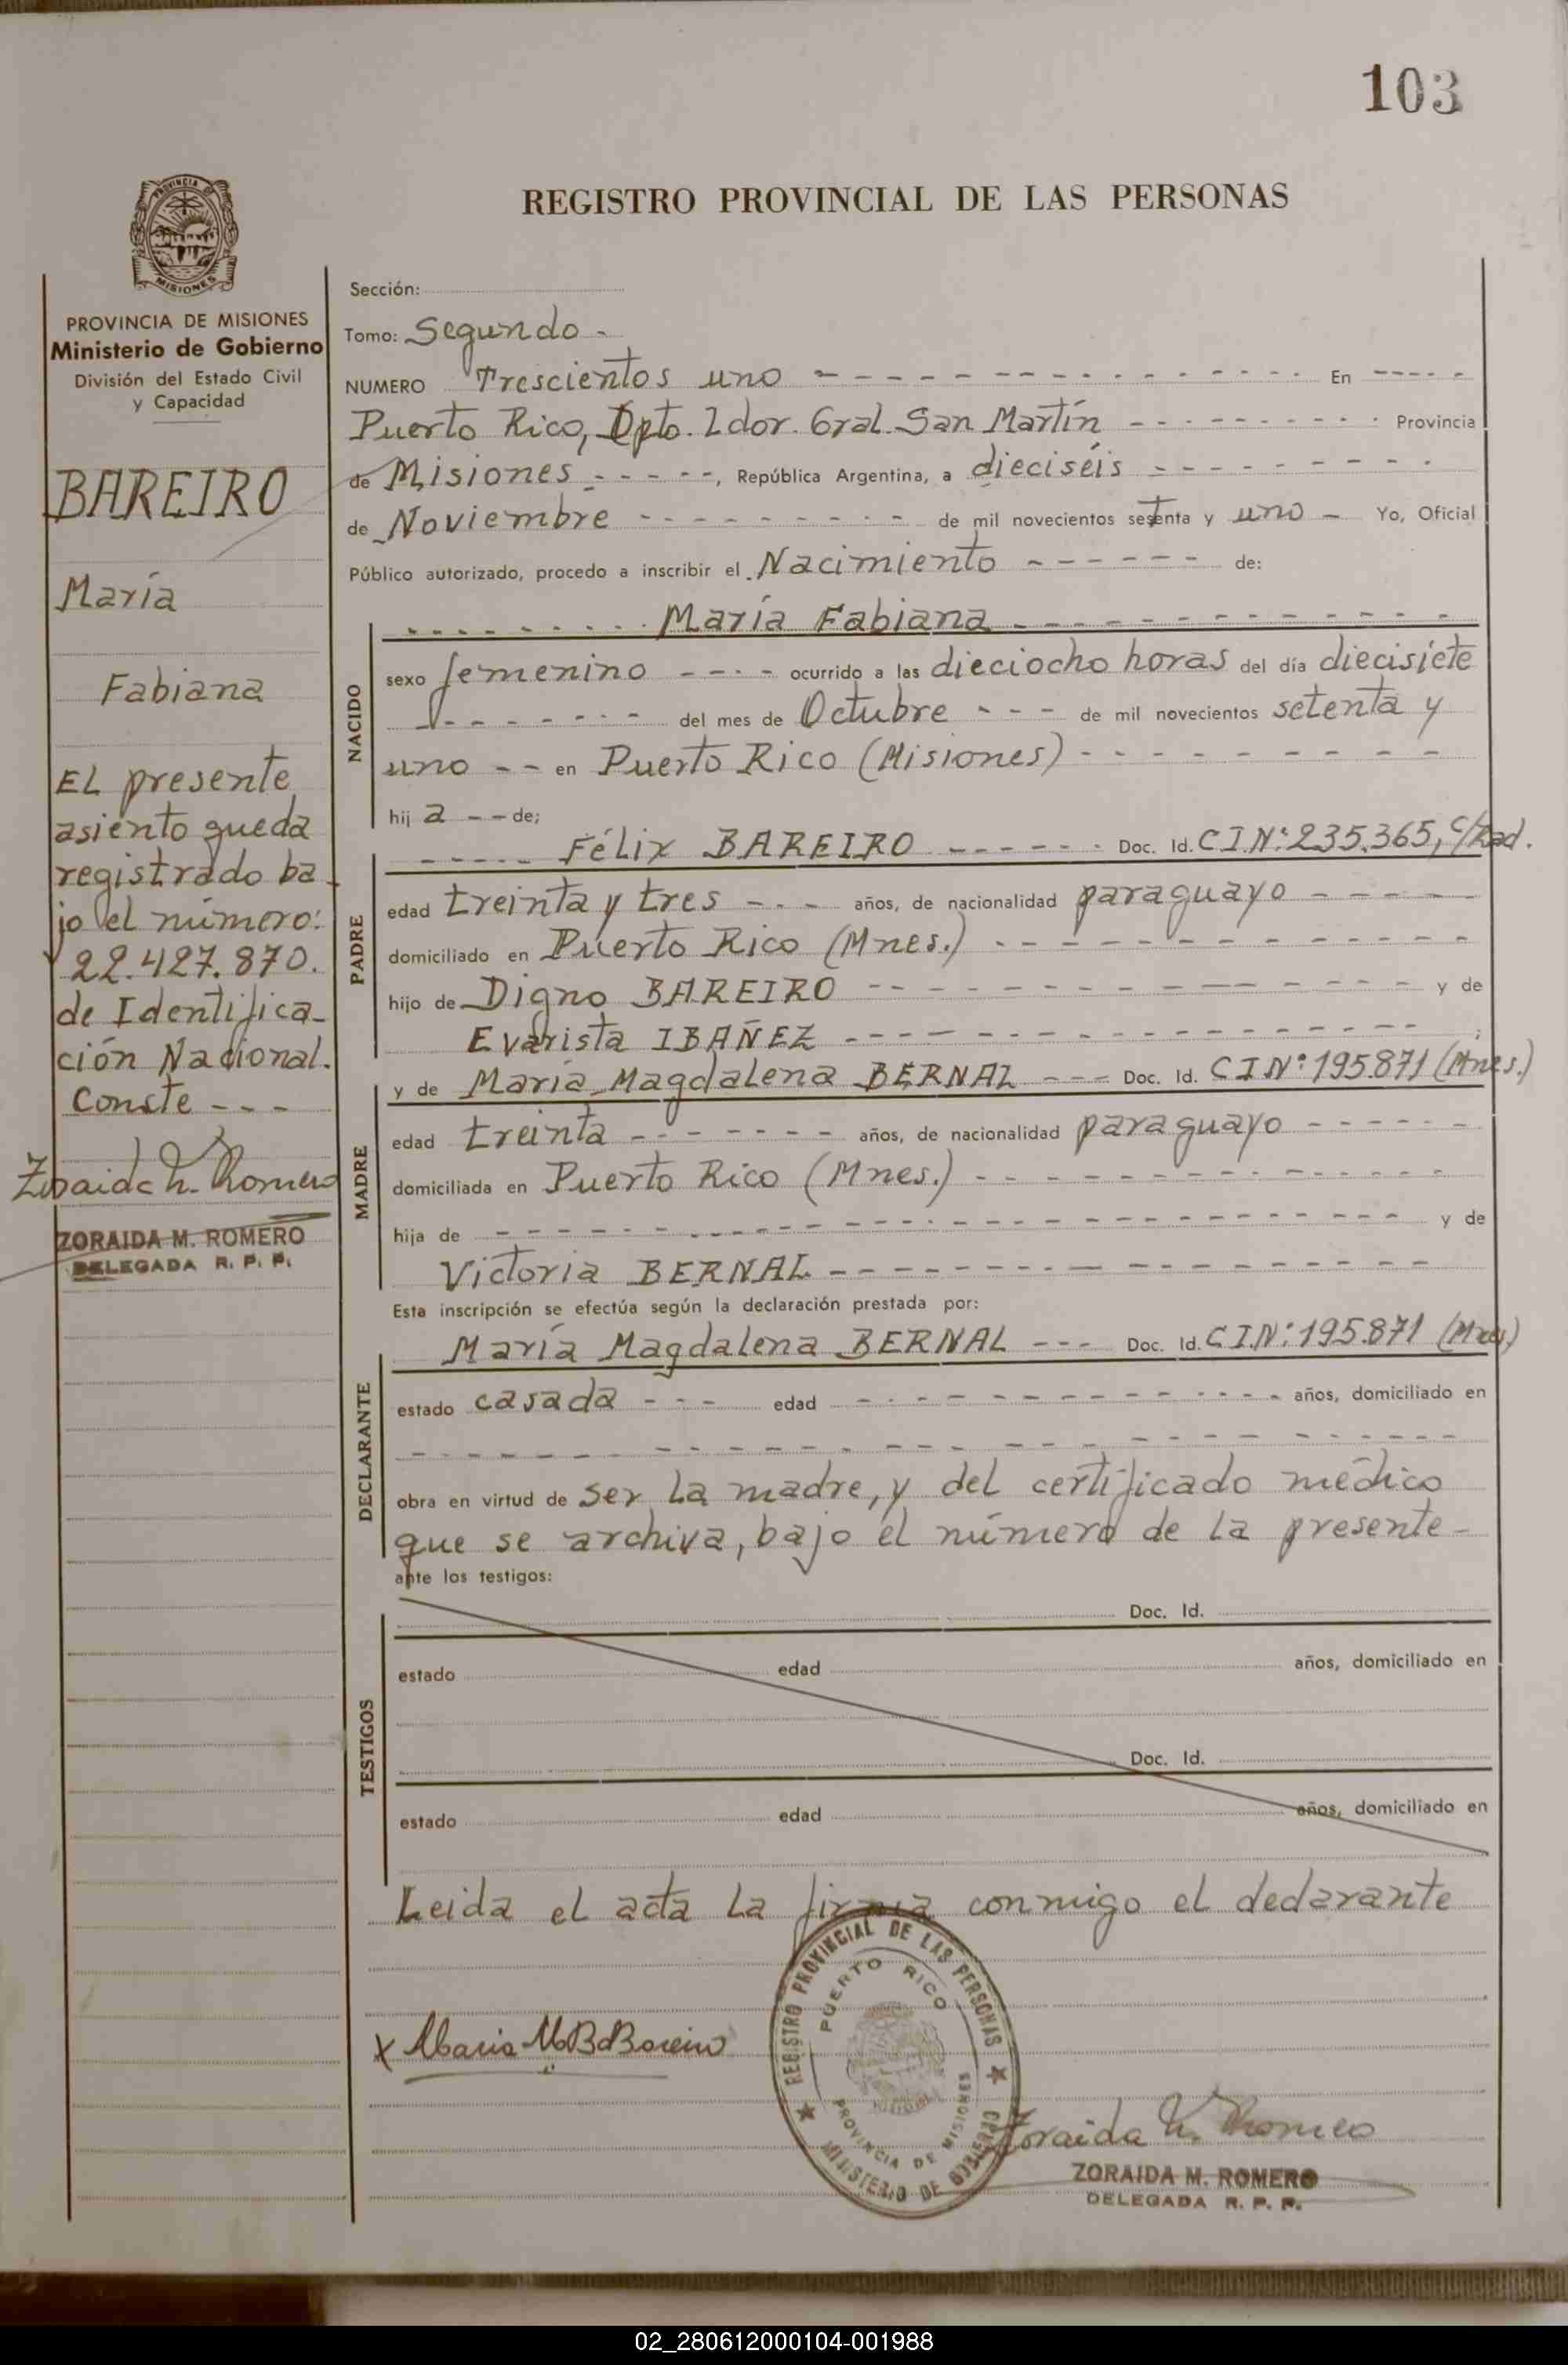 103
REGISTRO PROVINCIAL DE LAS PERSONAS
PROVINCIA DE MISIONES
PROVINCIA DE MISIONES
Ministerio de Gobierno
División del Estado Civil
y Capacidad
BAREIRO
María
Fabiana
El presente
asiento queda
registrado ba
jo el número:
22.427.870.
de Identifica-
ción Nacional.
Conste - - -
Zoraida M. Romero
ZORAIDA M. ROMERO
DELEGADA R. P. P.
Sección:
Tomo: Segundo -
NUMERO Trescientos uno - - - En - - -
Puerto Rico, Dpto. Ldor. Gral. San Martín - - - Provincia
de Misiones - - -, República Argentina, a dieciséis - - -
de Noviembre - - - de mil novecientos setenta y uno - Yo, Oficial
Público autorizado, procedo a inscribir el Nacimiento - - - de:
NACIDO
- - - María Fabiana - - -
sexo femenino - - - ocurrido a las dieciocho horas del día diecisiete
- - - del mes de Octubre - - - de mil novecientos setenta y
uno - - en Puerto Rico (Misiones) - - -
hij a - - de;
PADRE
- - - Félix BAREIRO - - - Doc. Id. C I.Nº: 235.365, C/Rad.
edad treinta y tres - - - años, de nacionalidad paraguayo - - -
domiciliado en Puerto Rico (Mnes.) - - -
hijo de Digno BAREIRO - - - y de
Evarista IBAÑEZ - - - ;
MADRE
y de María Magdalena BERNAL - - - Doc. Id. C I Nº 195.871 (Mnes.)
edad treinta - - - años, de nacionalidad paraguayo - - -
domiciliada en Puerto Rico (Mnes.) - - -
hija de - - - y de
Victoria BERNAL - - -
Esta inscripción se efectúa según la declaración prestada por:
DECLARANTE
María Magdalena BERNAL - - - Doc. Id. C I.Nº: 195.871 (Mnes)
estado casada - - - edad - - - años, domiciliado en
- - -
obra en virtud de ser la madre, y del certificado médico
que se archiva, bajo el número de la presente -
ante los testigos:
TESTIGOS
Doc. Id.
estado edad años, domiciliado en
Doc. Id.
estado edad años, domiciliado en
Leida el acta la firma conmigo el declarante
REGISTRO PROVINCIAL DE LAS PERSONAS
PUERTO RICO
PROVINCIA DE MISIONES
MINISTERIO DE GOBIERNO
x Maria M B d Bareiro
Zoraida M. Romero
ZORAIDA M. ROMERO
DELEGADA R. P. P.
02_280612000104-001988